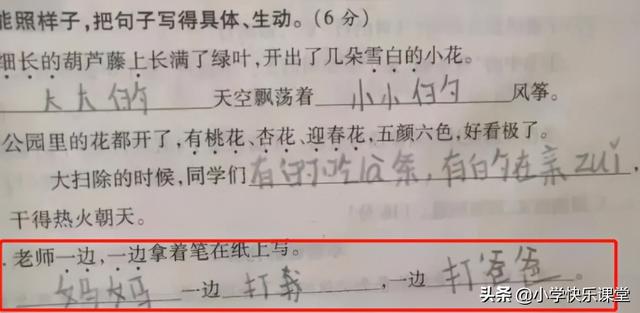 能照样子,把句子写得具体、生动。(6分)
细长的葫芦藤上长满了绿叶,开出了几朵雪白的小花。
大大的天空飘荡着小小的风筝。
公园里的花都开了,有桃花、杏花、迎春花,五颜六色,好看极了。
大扫除的时候,同学们有的吃谷条,有的在亲zui,
干得热火朝天。
.老师一边,一边拿着笔在纸上写。
妈妈一边打我,一边打爸爸。
头条@小学快乐课堂